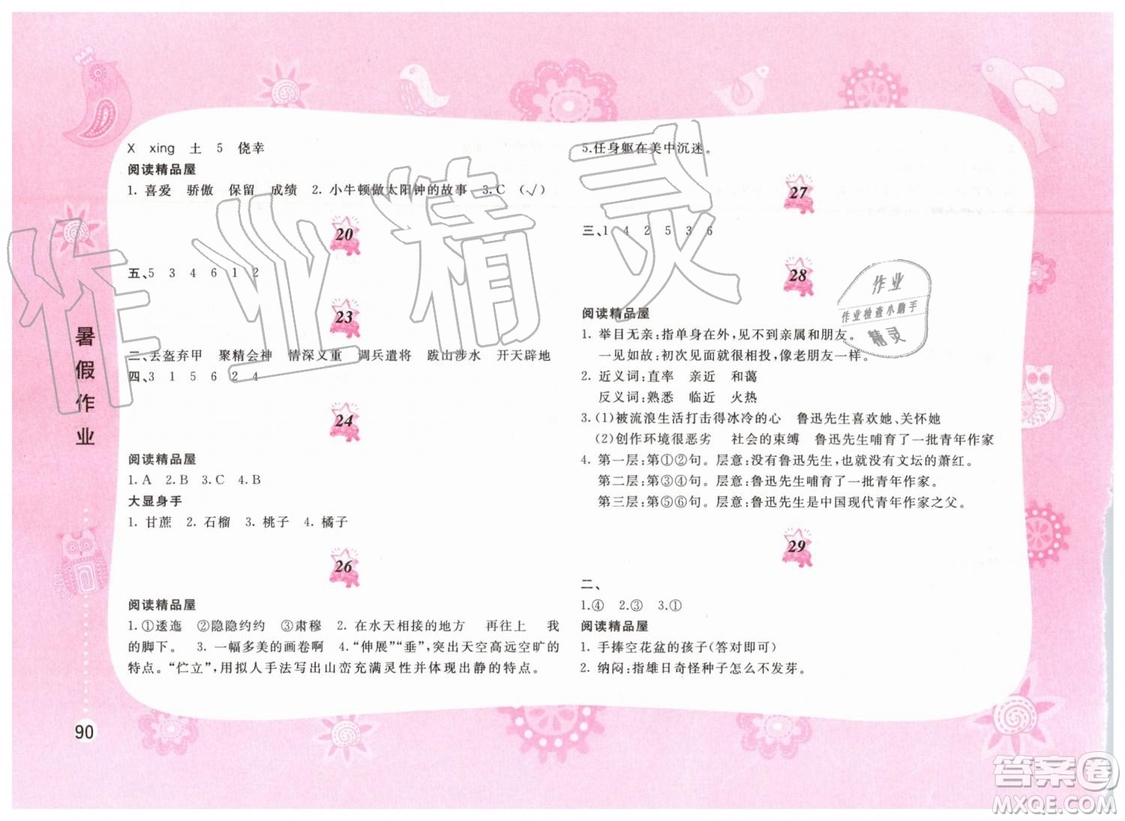 X xing 土 5 侥幸
阅读精品屋
1. 喜爱 骄傲 保留 成绩 2. 小牛顿做太阳钟的故事 3.C (√)
20
五、5 3 4 6 1 2
23
二、丢盔弃甲 聚精会神 情深义重 调兵遣将 跋山涉水 开天辟地
四、3 1 5 6 2 4
24
阅读精品屋
1. A 2. B 3. C 4. B
大显身手
1. 甘蔗 2. 石榴 3. 桃子 4. 橘子
26
阅读精品屋
1. ①逶迤 ②隐隐约约 ③肃穆 2. 在水天相接的地方 再往上 我
的脚下。 3. 一幅多美的画卷啊 4. “伸展”“垂”,突出天空高远空旷的
特点。“伫立”,用拟人手法写出山峦充满灵性并体现出静的特点。
5. 任身躯在美中沉迷。
27
三、1 4 2 5 3 6
28
阅读精品屋
1. 举目无亲:指单身在外,见不到亲属和朋友。
一见如故:初次见面很投合,像老朋友一样。
2. 近义词:直率 亲近 和蔼
反义词:熟悉 临近 火热
3. (1)被流浪生活打击得冰冷的心 鲁迅先生喜欢她、关怀她
(2)创作环境很恶劣 社会的束缚 鲁迅先生哺育了一批青年作家
4. 第一层:第①②句。层意:没有鲁迅先生,也就没有文坛的萧红。
第二层:第③④句。层意:鲁迅先生哺育了一批青年作家。
第三层:第⑤⑥句。层意:鲁迅先生是中国现代青年作家之父。
29
二、
1.④ 2.③ 3.①
阅读精品屋
1. 手捧空花盆的孩子(答对即可)
2. 纳闷:指雄日奇怪种子怎么不发芽。
暑假作业
90
作业精灵
作业
作业检查小助手
精灵
答案卷
MXQE.COM